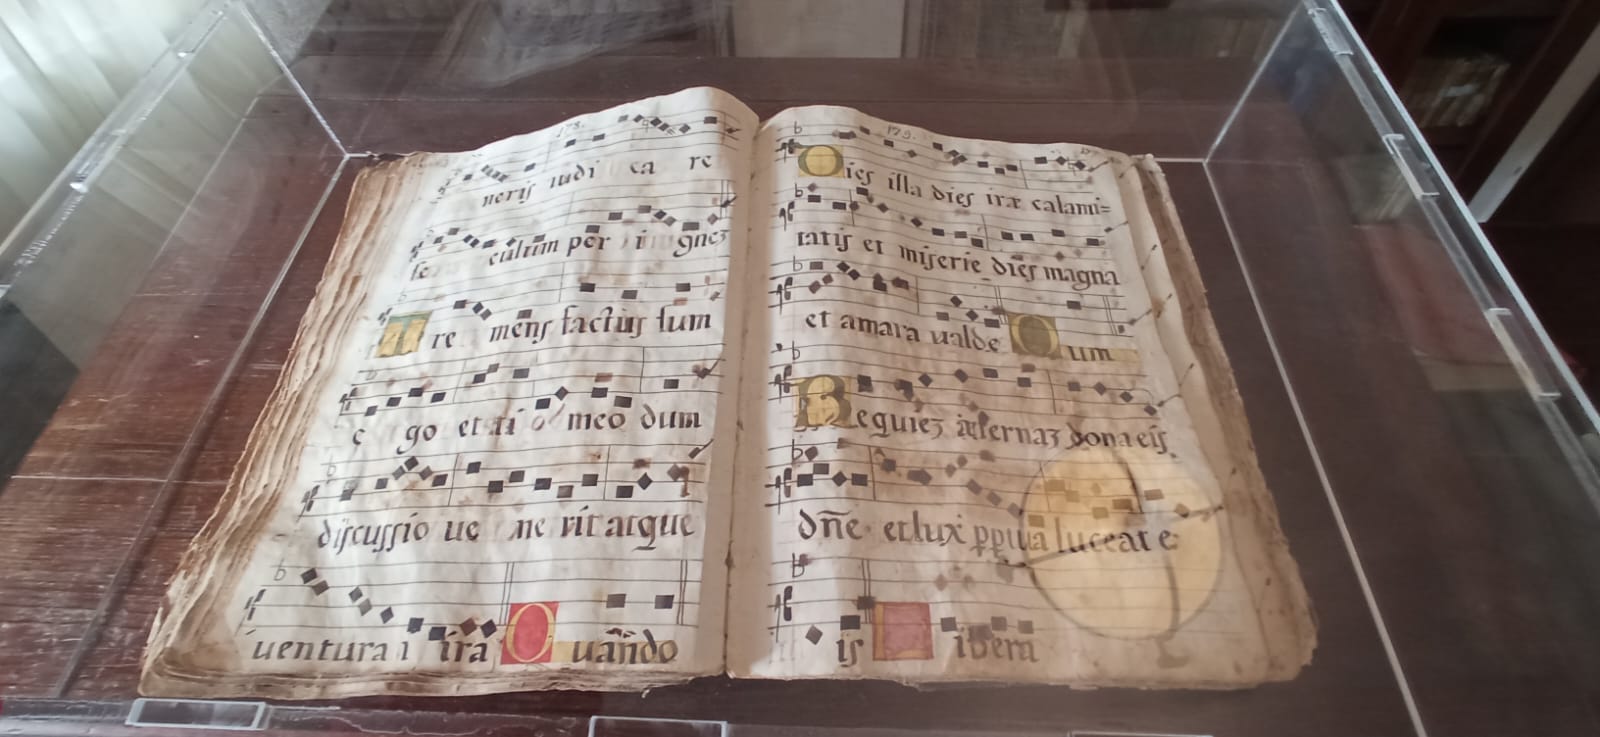 178.
neris iudi ca re
se culum per i gnez
Tre mens factus sum
e go et ti o meo dum
discussio ue ne rit atque
uentura i ira Quãndo
179.
Dies illa dies iræ calami=
tatis et miserie dies magna
et amara ualde Dum
Requiez æternaz dona eis
dñe et lux ppiua luceat e
is Libera